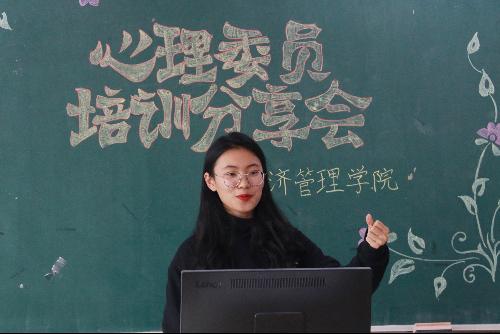 心理委员
培训分享会
济管理学院
Lenovo